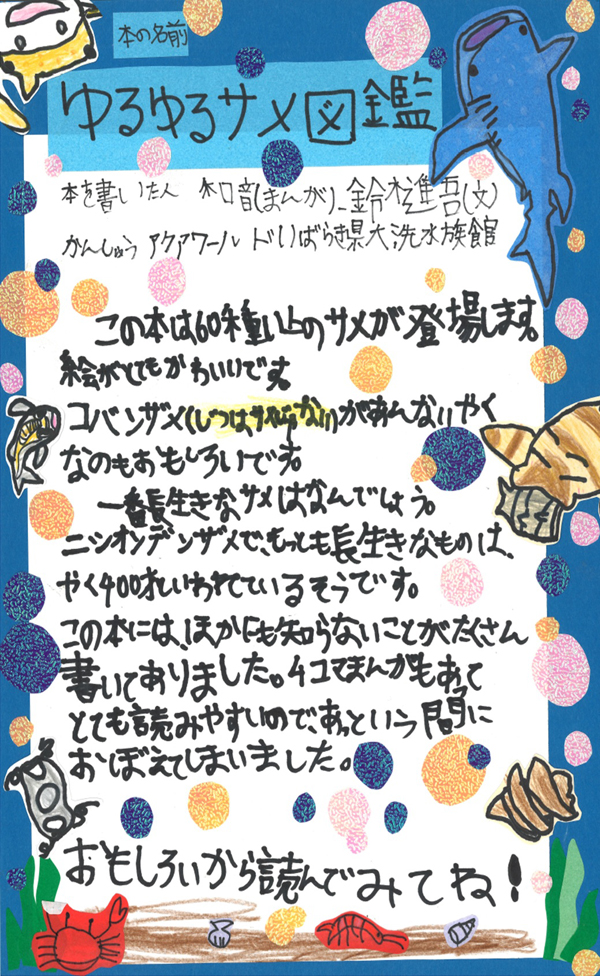 本の名前
ゆるゆるサメ図鑑
本を書いた人 和音(まんが)、鈴松進吾(文)
かんしゅう アクアワールドいばらき県大洗水族館
この本は60種い上のサメが登場します。
絵がとてもかわいいです。
コバンザメ(じつはサメじゃない)があんないやく
なのもおもしろいです。
一番長生きなサメはなんでしょう。
ニシオンデンザメで、もっとも長生きなものは、
やく400才といわれているそうです。
この本には、ほかにも知らないことがたくさん
書いてありました。4コマまんがもあって
とても読みやすいので、あっという間に
おぼえてしまいました。
おもしろいから読んでみてね!